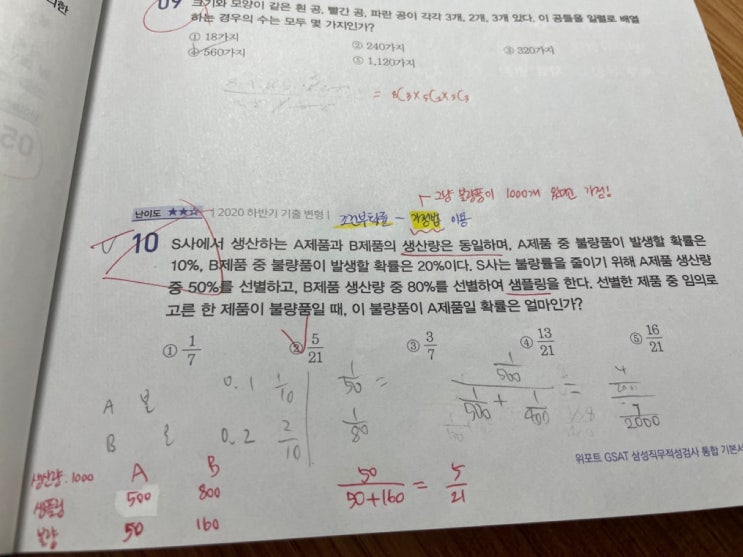 09 크기와 모양이 같은 흰 공, 빨간 공, 파란 공이 각각 3개, 2개, 3개 있다. 이 공들을 일렬로 배열
하는 경우의 수는 모두 몇 가지인가?
① 18가지 ② 240가지 ③ 320가지
④ 560가지 ⑤ 1,120가지
= ₈C₃ × ₅C₂ × ₃C₃
그냥 불량품이 1000개 있다면 가정!
난이도 ★★☆ | 2020 하반기 기출 변형 | 조건부확률 - 가정법 이용
10 S사에서 생산하는 A제품과 B제품의 생산량은 동일하며, A제품 중 불량품이 발생할 확률은
10%, B제품 중 불량품이 발생할 확률은 20%이다. S사는 불량률을 줄이기 위해 A제품 생산량
중 50%를 선별하고, B제품 생산량 중 80%를 선별하여 샘플링을 한다. 선별한 제품 중 임의로
고른 한 제품이 불량품일 때, 이 불량품이 A제품일 확률은 얼마인가?
① 1/7 ② 5/21 ③ 3/7 ④ 13/21 ⑤ 16/21
A 불 0.1 1/10 1/50 =
B 0.2 2/10 1/80
위포트 GSAT 삼성직무적성검사 통합 기본서
생산량: 1000 A B
샘플링 500 800
불량 50 160
50/50+160 = 5/21